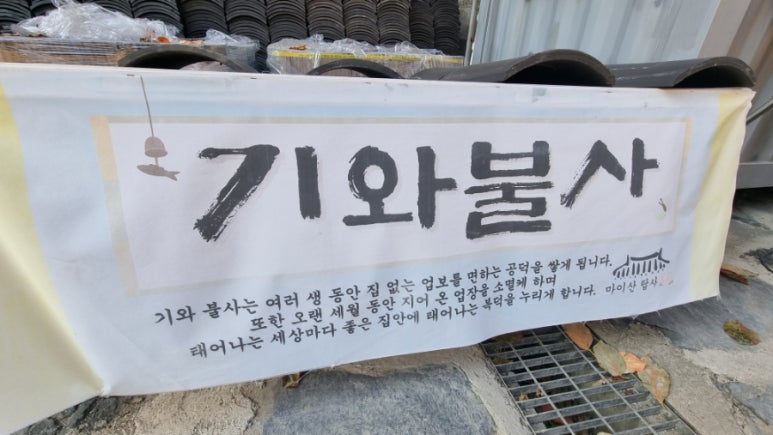 기와불사
기와 불사는 여러 생 동안 집 없는 업보를 면하는 공덕을 쌓게 됩니다.
또한 오랜 세월 동안 지어 온 업장을 소멸케 하며
태어나는 세상마다 좋은 집안에 태어나는 복덕을 누리게 합니다.
마이산 탑사